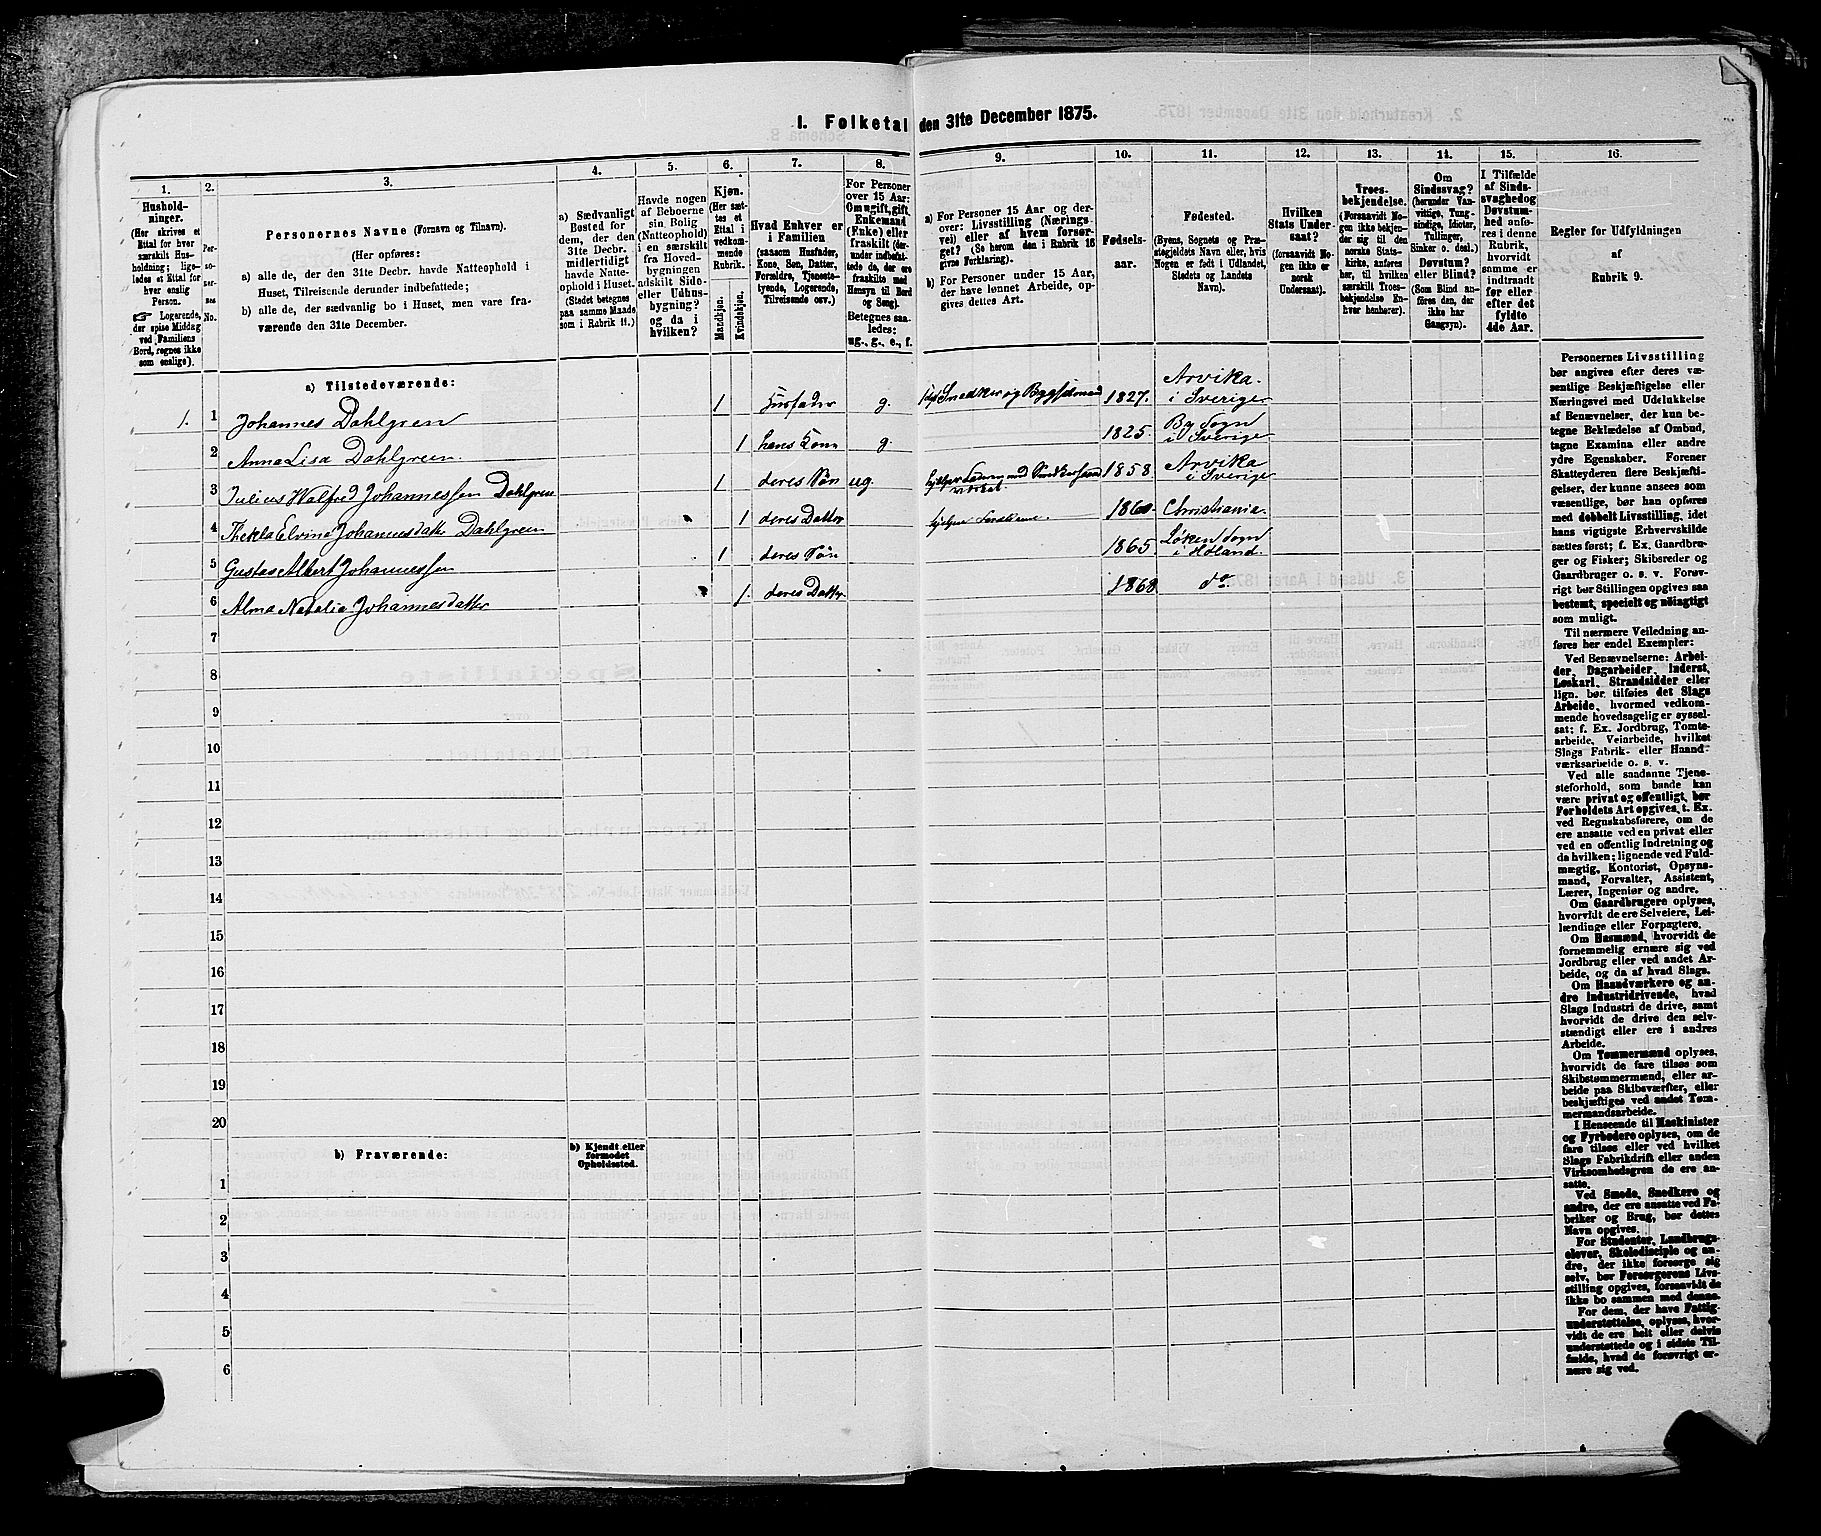 1. Folketal den 31te December 1875.
1. 2. 3. 4. 5. 6. 7. 8. 9. 10. 11. 12. 13. 14. 15. 16.
Hushold-
ninger.
(Her skrives et
Ettal for hver
særskilt Hus-
holdning; lige-
ledes et Ettal for
hver enslig
Person.
☞ Logerende,
der spise Middag
ved Familiens
Bord, regnes ikke
som enslige).
Per-
so-
ner-
nes
No.
Personernes Navne (Fornavn og Tilnavn).
(Her opføres:
a) alle de, der den 31te Decbr. havde Natteophold i
Huset, Tilreisende derunder indbefattede;
b) alle de, der sædvanlig bo i Huset, men vare fra-
værende den 31te December.
a) Sædvanligt
Bosted for
dem, der den
31te Decbr.
midlertidigt
havde Natte-
ophold i Huset.
(Stedet betegnes
paa samme Maade
som i Rubrik 11.)
Havde nogen
af Beboerne
sin Bolig
(Natteophold)
i en særskilt
fra Hoved-
bygningen
adskilt Side-
eller Udhus-
bygning?
og da i
hvilken?
Kjøn.
(Her sæt-
tes et
Ettal i
vedkom-
mende
Rubrik.
Mandkjøn.
Kvindekjøn.
Hvad Enhver er
i Familien
(saasom Husfader,
Kone, Søn, Datter,
Forældre, Tjeneste-
tyende, Logerende,
Tilreisende osv.)
For Personer
over 15 Aar:
Om ugift, gift,
Enkemand
(Enke) eller
fraskilt (der-
under indbefat-
tede de, der ere
fraskilte med
Hensyn til Bord
og Seng).
Betegnes saa-
ledes:
ug., g., e., f.
a) For Personer 15 Aar og der-
over: Livsstilling (Nærings-
vei) eller af hvem forsør-
get? (Se herom den i Rubrik 16
givne Forklaring).
b) For Personer under 15 Aar,
der have lønnet Arbeide, op-
gives dettes Art.
Fødsels-
aar.
Fødested.
(Byens, Sognets og Præ-
stegjeldets Navn eller, hvis
Nogen er født i Udlandet,
Stedets og Landets
Navn).
Hvilken
Stats Under-
saat?
(forsaavidt No-
gen ikke er
norsk
Undersaat).
Troes-
bekjendelse.
(Forsaavidt No-
gen ikke bekjen-
der sig til den
norske Stats-
kirke, anføres
her, til hvilken
særskilt Troes-
bekjendelse En-
hver henhører).
Om
Sindssvag?
(herunder Van-
vittige, Tung-
sindige, Idioter,
Tullinger,
Sinker o. desl.)
Døvstum?
eller Blind?
(Som Blind an-
føres den, der
ikke har
Gangsyn).
I Tilfælde
af Sinds-
svaghed og
Døvstum-
hed anfø-
res i denne
Rubrik,
hvorvidt
samme er
indtraadt
før eller
efter det
fyldte
4de Aar.
Regler for Udfyldningen
af
Rubrik 9.
a) Tilstedeværende:
1. 1 Johannes Dahlgren 1 Husfader g. Snedker og 1827. Arvika. i Sverige
2 Anna Lisa Dahlgreen. 1 hans Kone g. 1825. By Sogn i Sverige
3 Julius Walfred Johannessen Dahlgren 1 deres Søn ug. 1858 Arvika i Sverige
4 Thekla Elvine Johannesdatter Dahlgreen 1 deres Datter 1860. Christiania.
5 Gustav Albert Johannessen 1 deres Søn 1865 Løken Sogn i Høland.
6 Alma Natalia Johannesdatter 1. deres Datter. 1868 do.
7
8
9
10
11
12
13
14
15
16
17
18
19
20
b) Fraværende:
b) Kjendt eller
formodet
Opholdssted.
1
2
3
4
5
6
Personernes Livsstilling
bør angives efter deres væ-
sentlige Beskjæftigelse eller
Næringsvei med Udelukkelse
af Benævnelser, der kun be-
tegne Beklædelse af Ombud,
tagne Examina eller andre
ydre Egenskaber. Forener
Skatteyderen flere Beskjæfti-
gelser, der kunne ansees som
væsentlige, bør han opføres
med dobbelt Livsstilling, idet
hans vigtigste Erhvervskilde
sættes først; f. Ex. Gaardbru-
ger og Fisker; Skibsreder og
Gaardbruger o. s. v. Forøv-
rigt bør Stillingen opgives saa
bestemt, specielt og nøiagtigt
som muligt.
Til nærmere Veiledning an-
føres her endel Exempler:
Ved Benævnelserne: Arbei-
der, Dagarbeider, Inderst,
Løskarl, Strandsidder eller
lign. bør tilføies det Slags
Arbeide, hvormed vedkom-
mende hovedsagelig er syssel-
sat; f. Ex. Jordbrug, Tomte-
arbeide, Veiarbeide, hvilket
Slags Fabrik- eller Haand-
værksarbeide o. s. v.
Ved alle saadanne Tjene-
steforhold, som baade kan
være privat og offentligt, bør
Forholdets Art opgives, t. Ex.
ved Regnskabsførere, om de
ere ansatte ved en privat eller
ved en offentlig Indretning og
da hvilken; lignende ved Fuld-
mægtig, Kontorist, Opsyns-
mand, Forvalter, Assistent,
Lærer, Ingeniør og andre.
Om Gaardbrugere oplyses,
hvorvidt de ere Selveiere, Lei-
lændinge eller Forpagtere.
Om Husmænd, hvorvidt de
fornemmelig ernære sig ved
Jordbrug eller ved andet Ar-
beide, og da af hvad Slags.
Om Haandværkere og an-
dre Industridrivende, hvad
Slags Industri de drive, samt
hvorvidt de drive den selv-
stændigt eller ere i andres
Arbeide.
Om Tømmermænd oplyses,
hvorvidt de fare tilsøs som
Skibstømmermænd, eller ar-
beide paa Skibsværfter, eller
beskjæftiges ved andet Tøm-
mermandsarbeide.
I Henseende til Maskinister
og Fyrbødere oplyses, om de
fare tilsøs eller ved hvilket
Slags Fabrikdrift eller anden
Virksomhedsgren de ere an-
satte.
Ved Smede, Snedkere og
andre, der ere ansatte ved Fa-
briker og Brug, bør dettes
Navn opgives.
For Studenter, Landbrugs-
elever, Skoledisciple og an-
dre, der ikke forsørge sig
selv, bør Forsørgerens Livs-
stilling opgives, forsaavidt de
ikke bo sammen med denne.
For dem, der have Fattig-
understøttelse, oplyses, hvor-
vidt de ere helt eller delvis
understøttede og i sidste Til-
fælde, hvad de forøvrigt er-
nære sig ved.